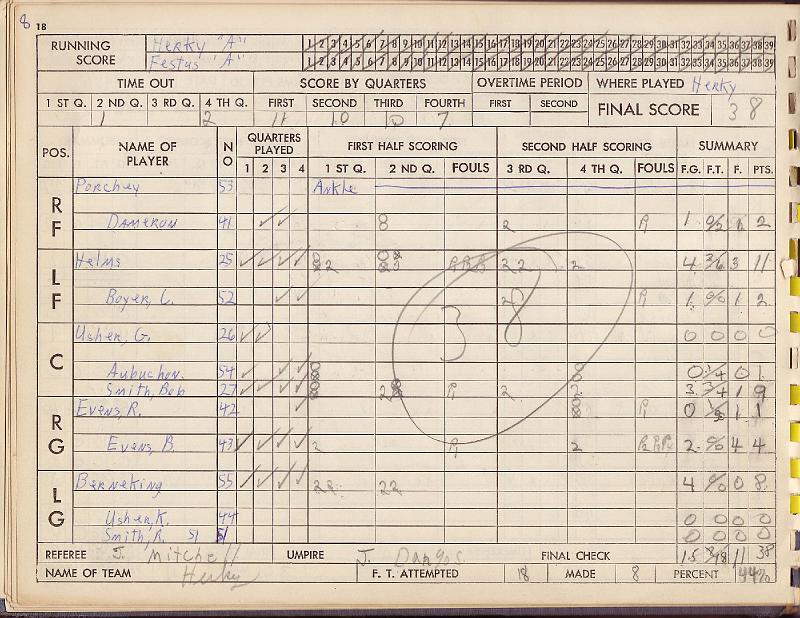 8 18
RUNNING SCORE Herky "A" 1 2 3 4 5 6 7 8 9 10 11 12 13 14 15 16 17 18 19 20 21 22 23 24 25 26 27 28 29 30 31 32 33 34 35 36 37 38 39
Festus "A" 1 2 3 4 5 6 7 8 9 10 11 12 13 14 15 16 17 18 19 20 21 22 23 24 25 26 27 28 29 30 31 32 33 34 35 36 37 38 39
TIME OUT SCORE BY QUARTERS OVERTIME PERIOD WHERE PLAYED Herky
1 ST Q. 2 ND Q. 3 RD Q. 4 TH Q. FIRST SECOND THIRD FOURTH FIRST SECOND FINAL SCORE 38
1 2 11 10 10 7
POS. NAME OF PLAYER NO QUARTERS PLAYED FIRST HALF SCORING SECOND HALF SCORING SUMMARY
1 2 3 4 1 ST Q. 2 ND Q. FOULS 3 RD Q. 4 TH Q. FOULS F.G. F.T. F. PTS.
RF Porchey 53 Ankle
Dameron 41 2 1 0/2 2
LF Helms 25 2 2 2 2 2 4 3/6 3 11
Boyer, L. 52 2 1 0/0 1 2
C Usher, G. 26 0 0 0 0
Aubuchon 54 0 1/4 0 1
Smith, Bob 27 2 2 3 3/4 1 9
RG Evens, R. 42 0 1 1
Evens, B. 43 2 2 2 0/0 4 4
LG Berneking 55 22 22 4 0/0 0 8
Usher, K. 44 0 0 0 0
Smith, R. 51 51 0 0 0 0
38
REFEREE J. Mitchell UMPIRE J. Dangos FINAL CHECK 15 8/18 11 38
NAME OF TEAM Herky F. T. ATTEMPTED 18 MADE 8 PERCENT 44%